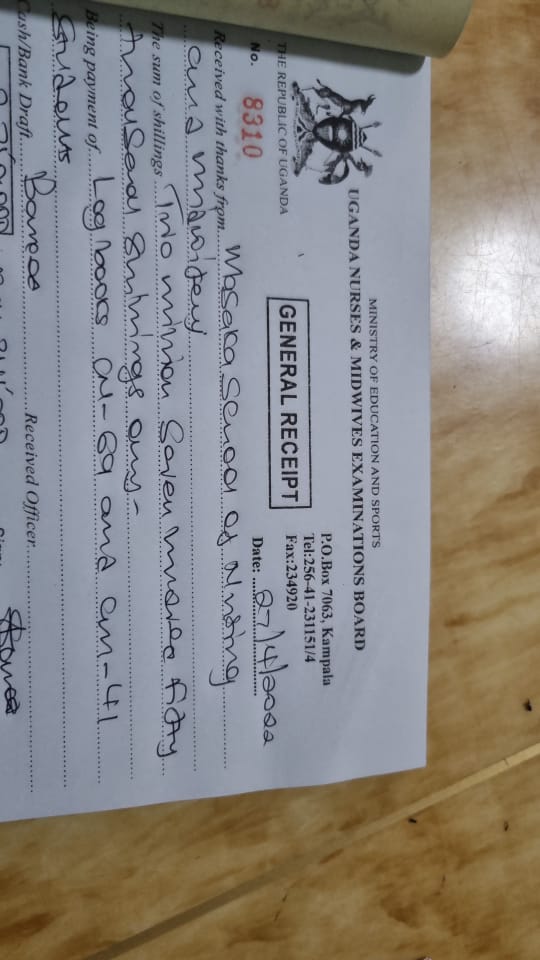 MINISTRY OF EDUCATION AND SPORTS
UGANDA NURSES & MIDWIVES EXAMINATIONS BOARD
P.O.Box 7063, Kampala
Tel:256-41-231151/4
Fax:234920
THE REPUBLIC OF UGANDA
GENERAL RECEIPT
No. 8310
Date: 27/4/2022
Received with thanks from Masaka School of Nursing
and midwifery
The sum of shillings Two million Seven hundred fifty
thousand shillings only-
Being payment of Log books CN-69 and CM-41
Students
Cash/Bank Draft
Received Officer